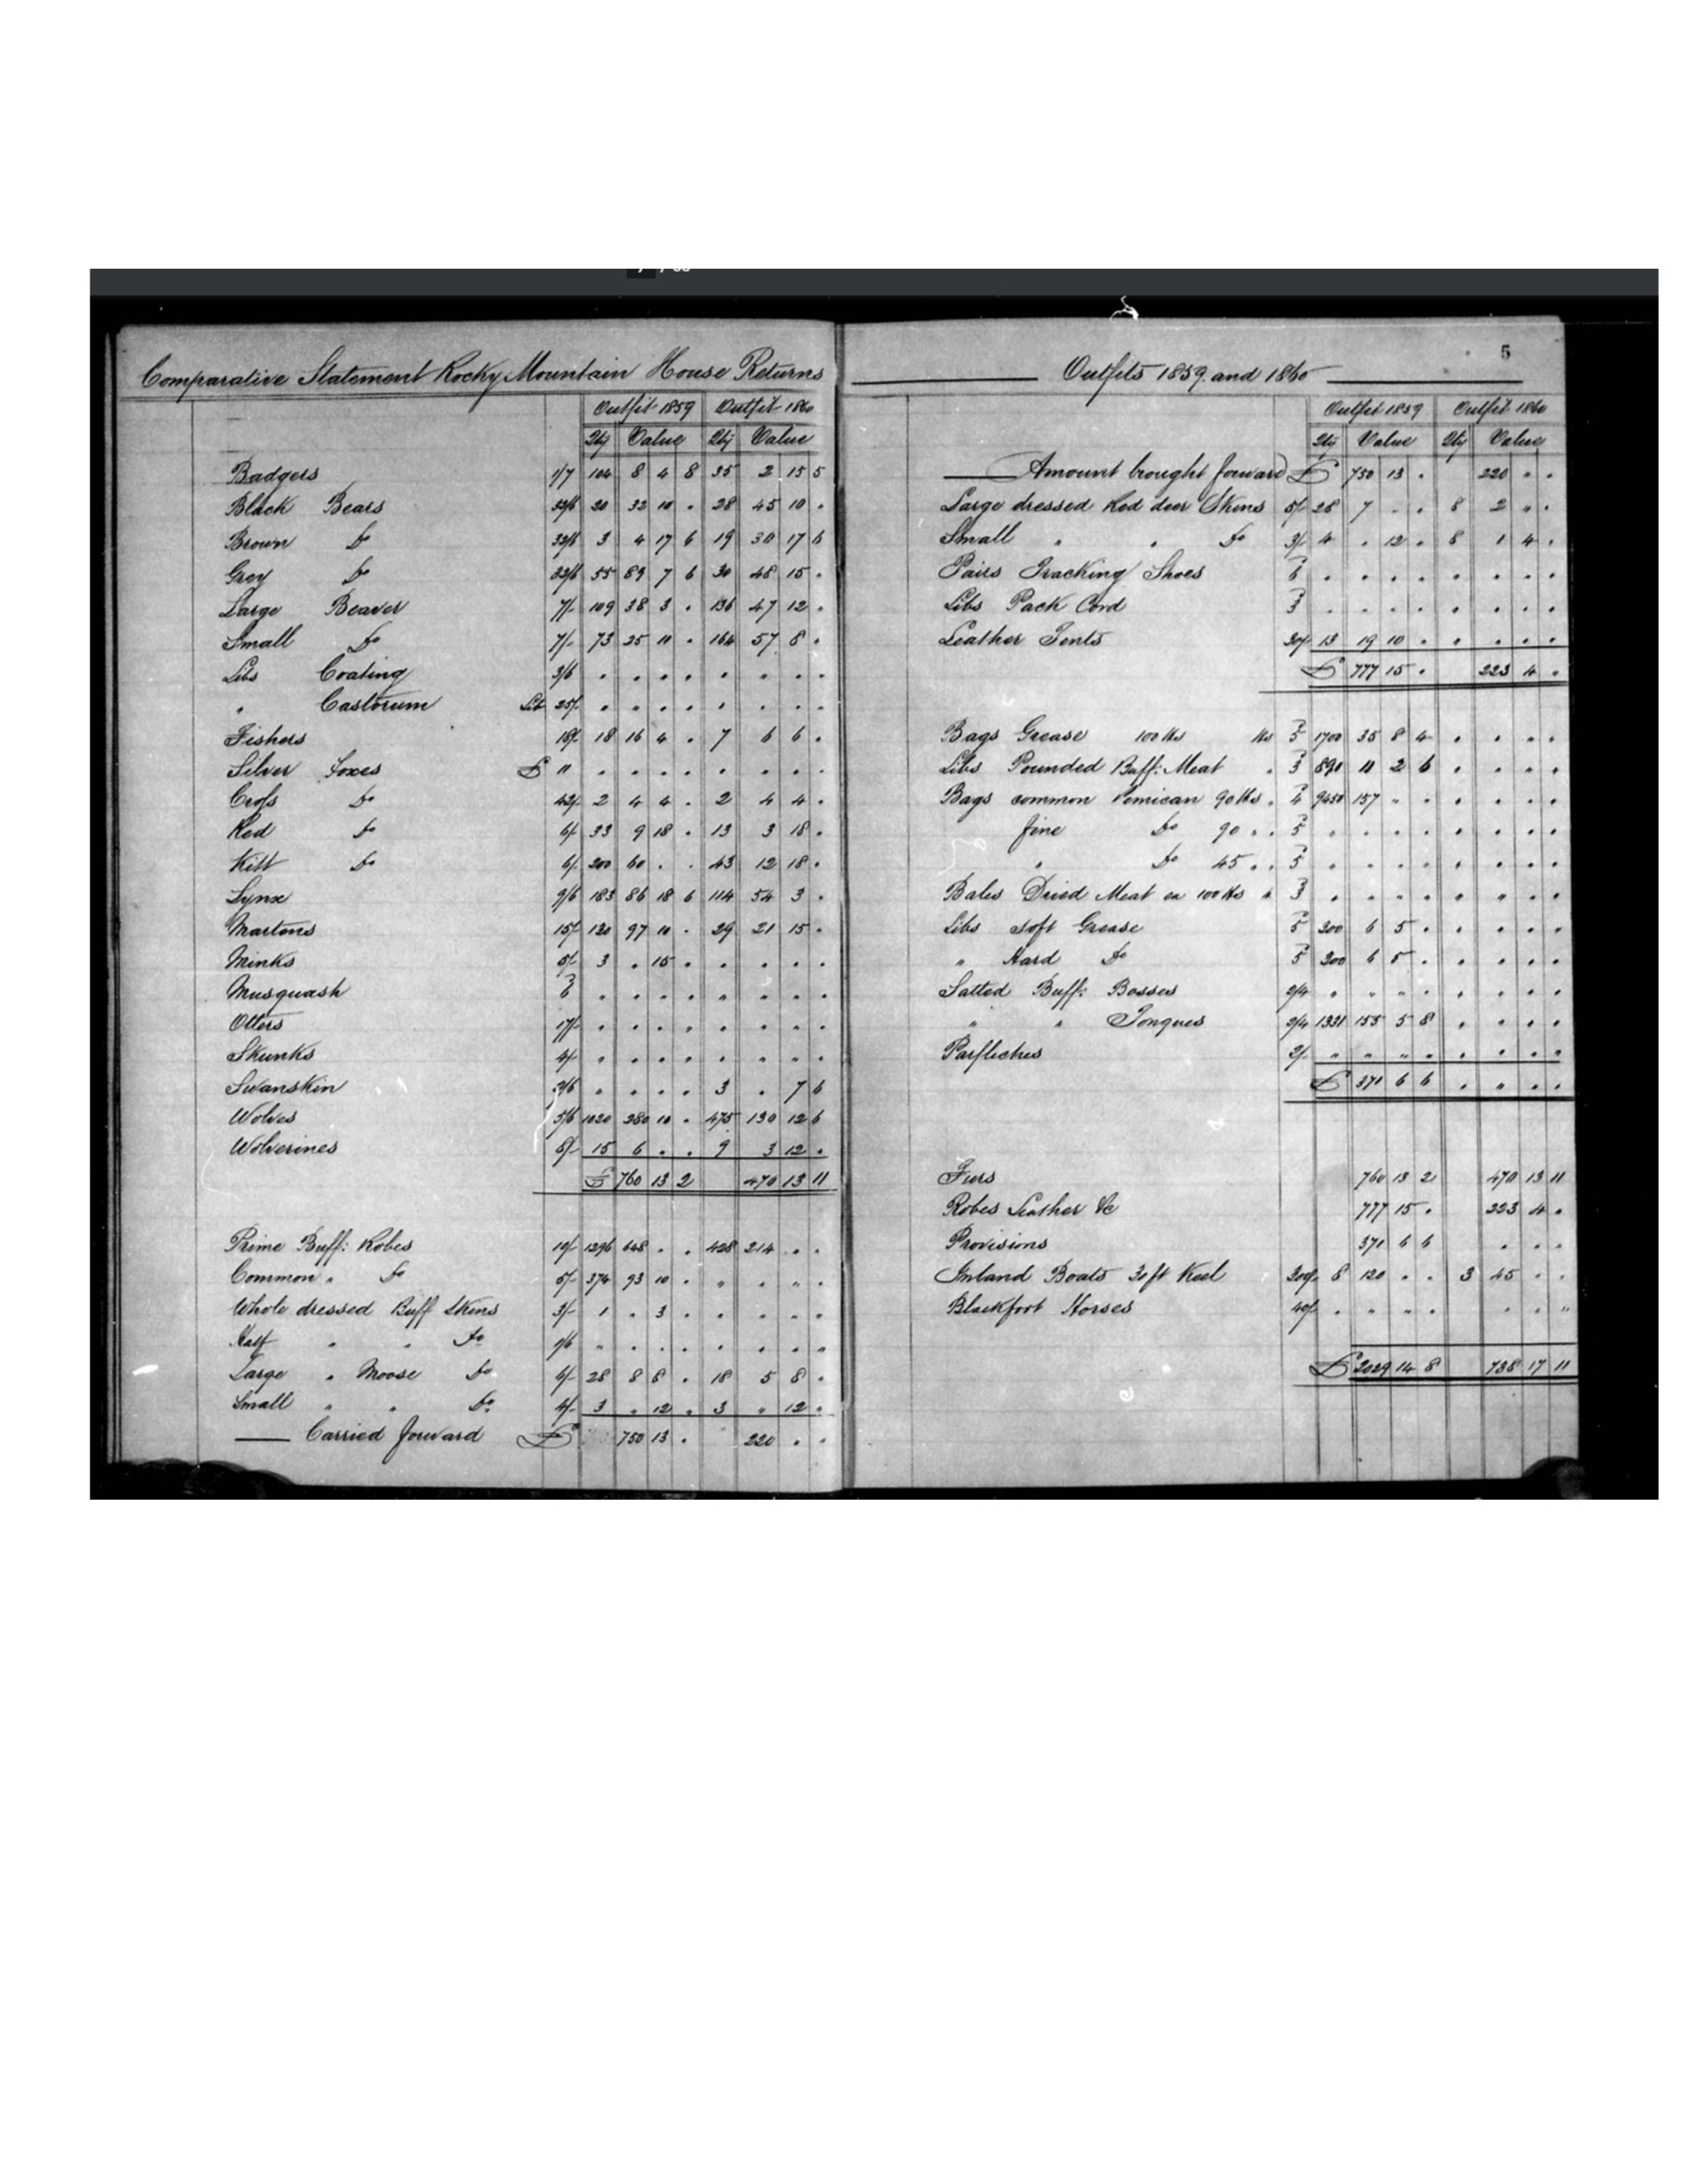 Comparative Statement Rocky Mountain House Returns
Outfit 1859 Outfit 1860
Qty Value Qty Value
Badgers 1/7 104 8 4 8 35 2 15 5
Black Bears 32/6 20 32 10 . 28 45 10 .
Brown Do 32/6 3 4 17 6 19 30 17 6
Grey Do 32/6 55 89 7 6 30 48 15 .
Large Beaver 7/- 109 38 3 . 136 47 12 .
Small Do 7/- 73 25 11 . 164 57 8 .
Libs Coating 3/6 . . . . . . . .
" Castorum Lib 25/- . . . . . . . .
Fishers 18/- 18 16 4 . 7 6 6 .
Silver Foxes £ 11 . . . . . . . .
Cross Do 42/- 2 4 4 . 2 4 4 .
Red Do 6/- 33 9 18 . 13 3 18 .
Kitt Do 6/- 200 60 . . 43 12 18 .
Lynx 9/6 183 86 18 6 114 54 3 .
Martens 15/- 130 97 10 . 29 21 15 .
Minks 5/- 3 . 15 . . . . .
Musquash 6 . . . . " . . .
Otters 17/- . . . . . . . .
Skunks 4/- " . . . . . " .
Swanskin 2/6 " . . . 3 . 7 6
Wolves 5/6 1020 280 10 . 475 130 12 6
Wolverines 8/- 15 6 . . 9 3 12 .
£ 760 13 2 470 13 11
Prime Buff: Robes 10/- 1296 648 . . 428 214 . .
Common " Do 5/- 374 93 10 . " . " .
Whole dressed Buff Skins 3/- 1 . 3 . . . . "
Half " " Do 1/6 " . . . . . . "
Large " Moose Do 6/- 28 8 8 . 18 5 8 .
Small " " Do 4/- 3 . 12 . 3 " 12 .
Carried forward £ 750 13 . 220 . .
5
Outfits 1859 and 1860
Outfit 1859 Outfit 1860
Qty Value Qty Value
Amount brought forward £ 750 13 . 220 . .
Large dressed Red deer Skins 5/- 28 7 . . 8 2 " .
Small " " Do 3/- 4 . 12 . 8 1 4 .
Pairs Tracking Shoes 6 . . . . . . . .
Libs Pack Cord 3 . . . . . . . .
Leather Tents 30/- 13 19 10 . . . . .
£ 777 15 . 223 4 .
Bags Grease 100 lbs lbs 5 1700 35 8 4 . . . .
Libs Pounded Buff: Meat " 3 890 11 2 6 . . . .
Bags common Pemican 90 lbs . 4 9450 157 " " . . . .
fine Do 90 . . 5 . . . . . . . .
" Do 45 . . 5 . . . . . . . .
Bales Dried Meat ea 100 lbs " 3 . . . . . . . .
Libs soft Grease 5 300 6 5 . . . . .
" Hard Do 5 300 6 5 . . . . .
Salted Buff: Bosses 2/4 . " " . . . . .
" " Tongues 2/4 1331 155 5 8 . . . .
Parfleches 2/- " " " . . . . .
£ 371 6 6 . " . .
Furs 760 13 2 470 13 11
Robes Leather &c 777 15 . 223 4 .
Provisions 371 6 6 . . .
Inland Boats 30 ft Keel 300/- 8 120 . . 3 45 . .
Blackfoot Horses 40/- . " " . . . "
£ 2029 14 8 738 17 11